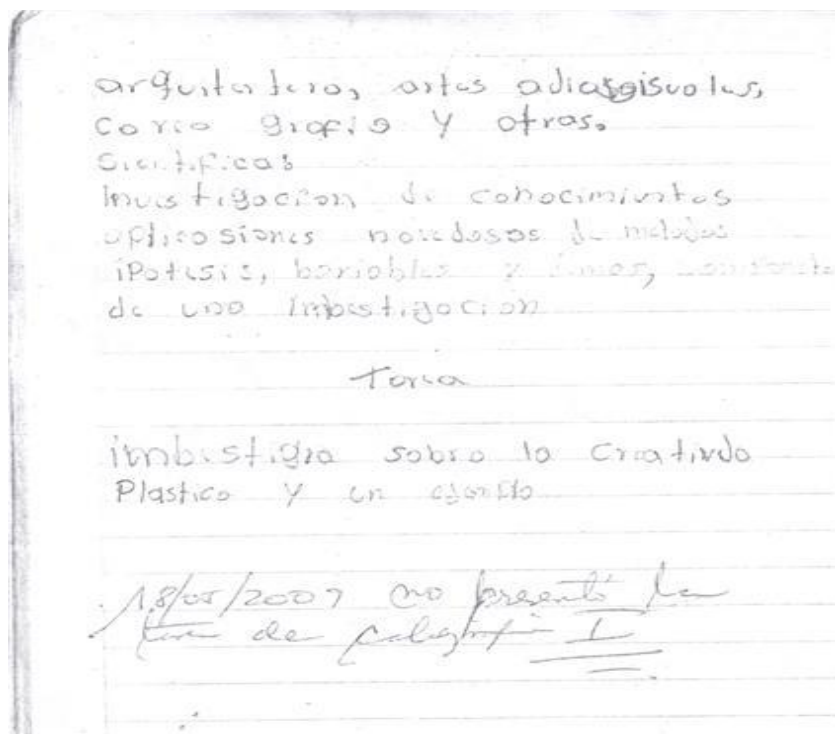 arquitectura, artes adiasgisuales,
corio grafia y otras.
Sientificas
Investigacion de conocimientos
aplicasiones novedosas de metodos
ipotesis, bariables y
de una imbestigacion
Tarea
imbestigra sobre la creativida
Plastica y un ejemplo
18/05/2007 no presentó la
tarea de caligrafia I